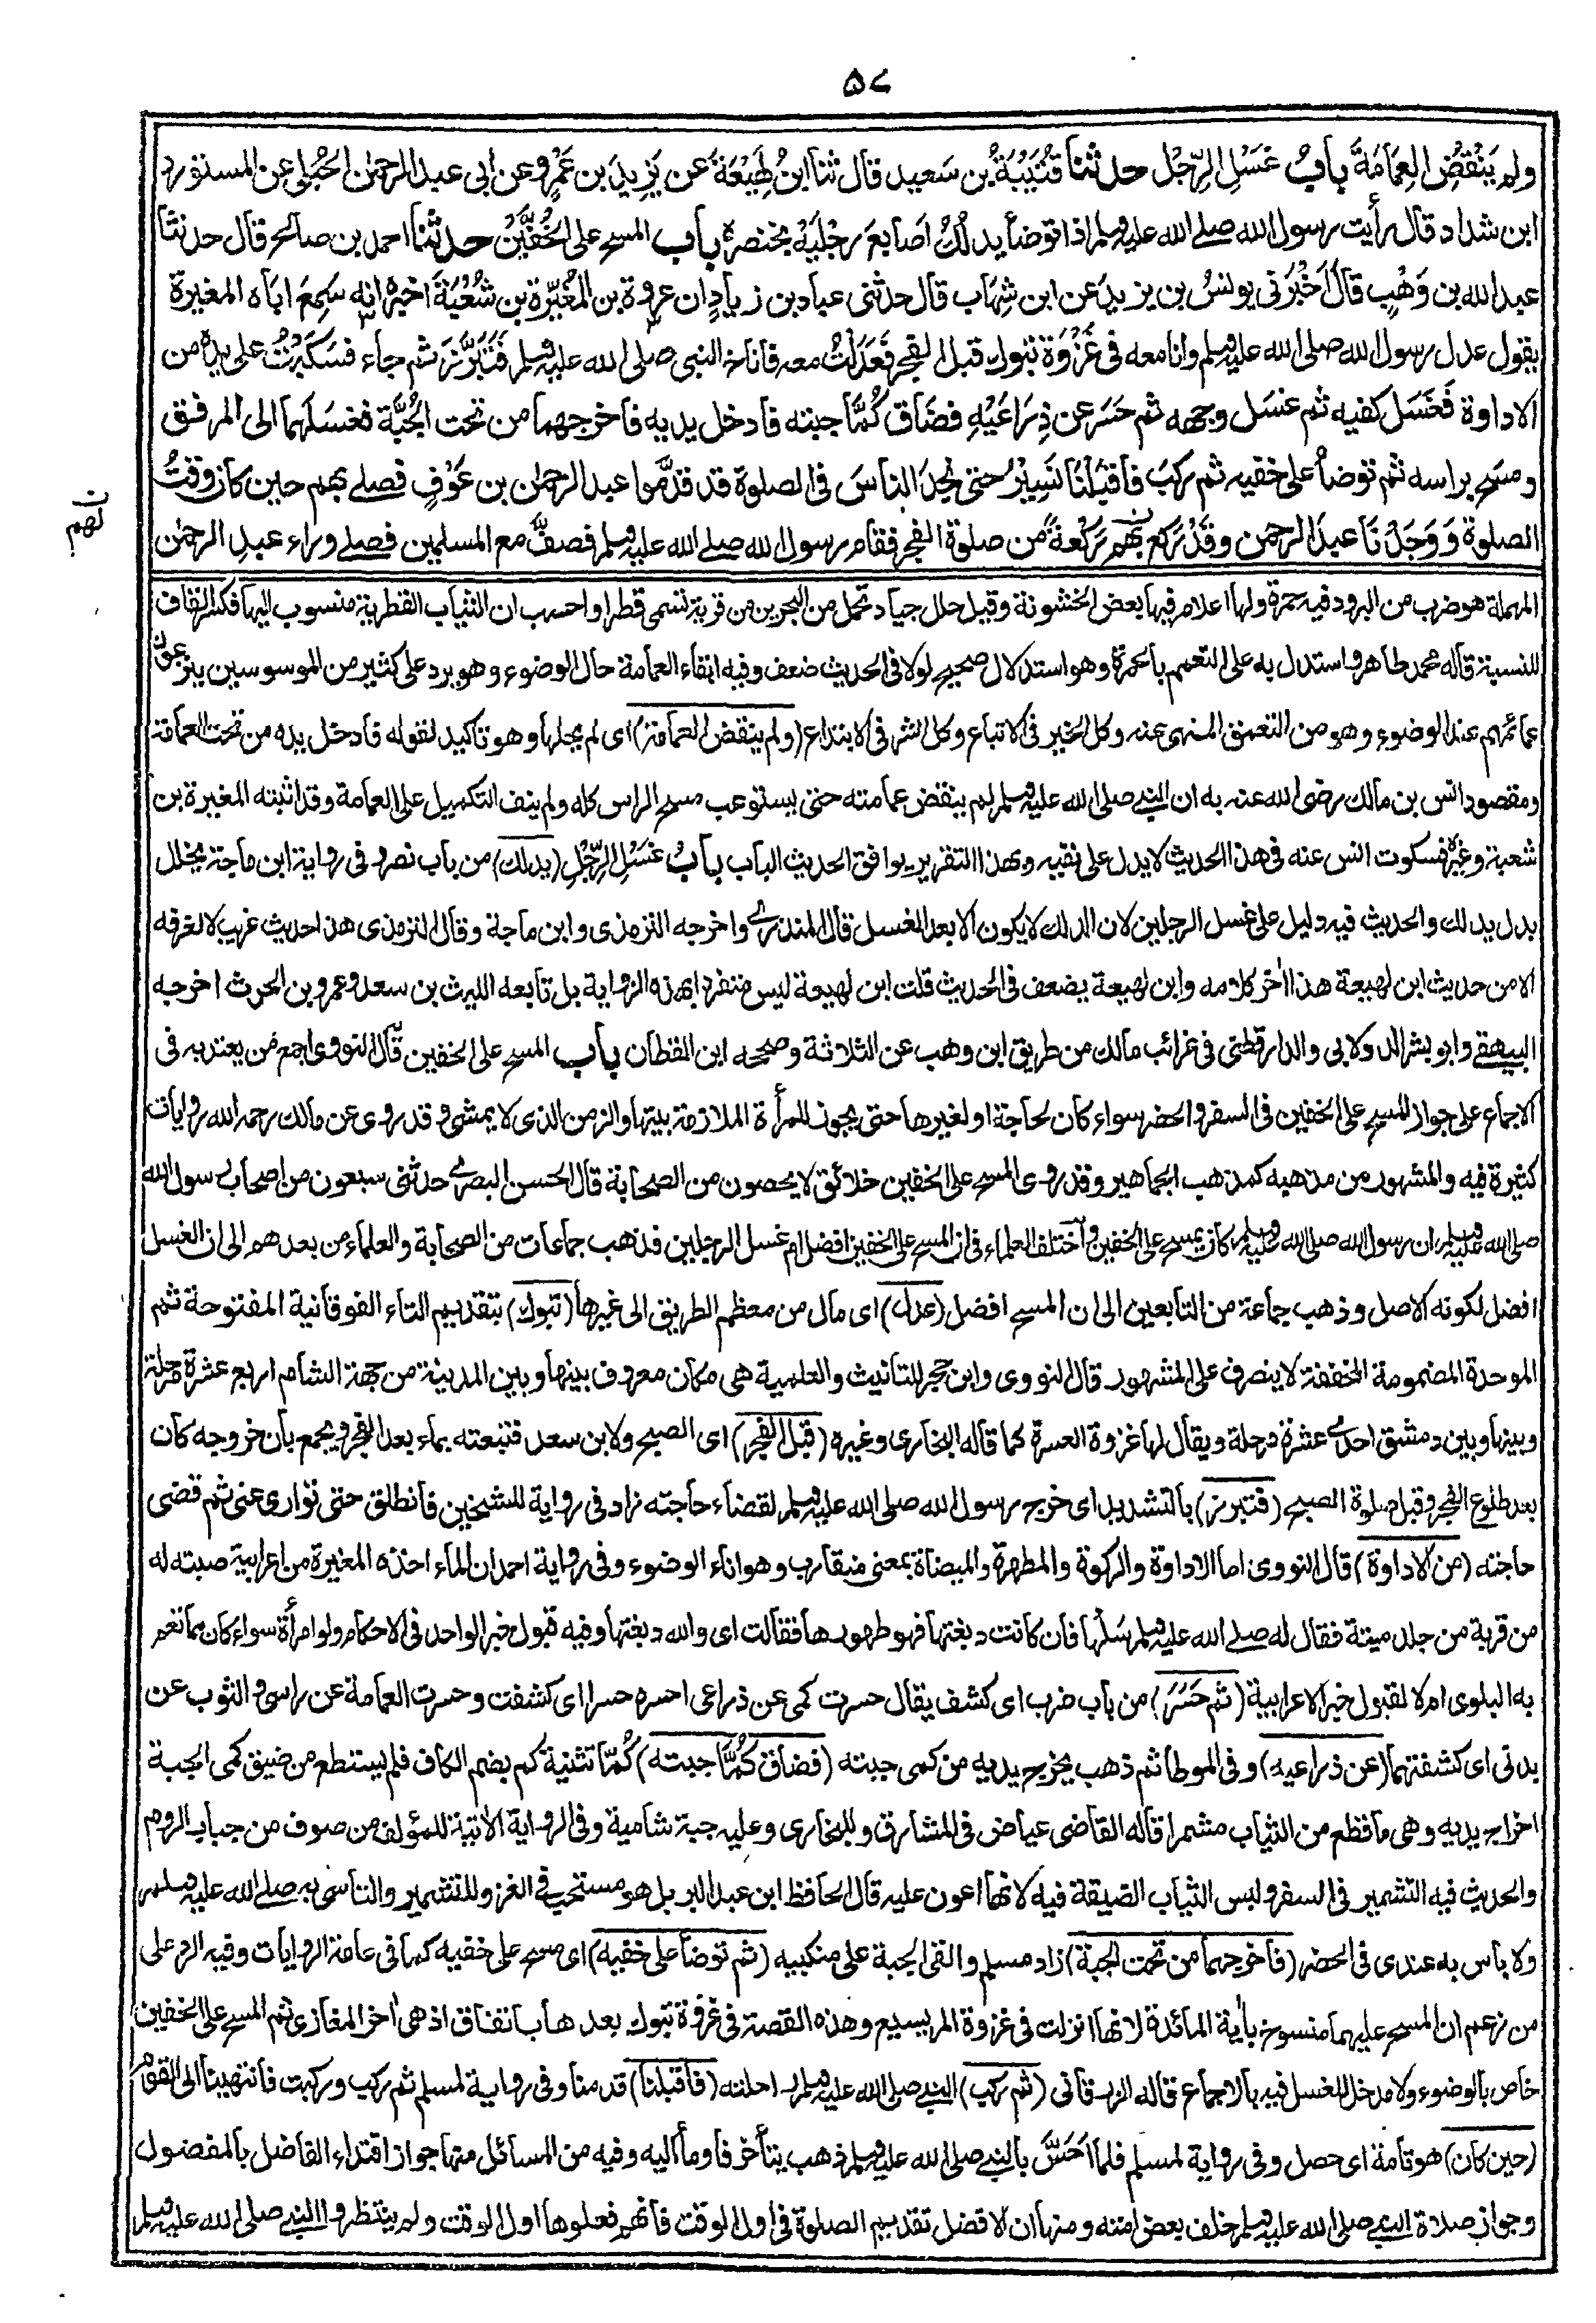 ۵۷
ولم ينقض العمامة باب غسل الرجل حدثنا قتيبة بن سعيد قال ثنا ابن لهيعة عن يزيد بن عمرو عن ابى عبد الرحمن الحبلى عن المستورد
ابن شداد قال رأيت رسول الله صلے الله عليه وسلم اذا توضأ يدلك اصابع رجليه بخنصره باب المسح على الخفين حدثنا احمد بن صالح قال حدثنا
عبد الله بن وهب قال اخبرنى يونس بن يزيد عن ابن شهاب قال حدثنى عباد بن زياد ان عروة بن المغيرة بن شعبة اخبره انه سمع اباه المغيرة
يقول عدل رسول الله صلى الله عليه وسلم وانا معه فى غزوة تبوك قبل الفجر فعدلت معه فاناخ النبى صلى الله عليه وسلم فتبرز ثم جاء فسكبت على يده من
الاداوة فغسل كفيه ثم غسل وجهه ثم حسر عن ذراعيه فضاق كما جبته فادخل يديه فاخرجهما من تحت الجبة فغسلهما الى المرفق
ومسح براسه ثم توضأ على خفيه ثم ركب فاقبلنا نسير حتى نجد الناس فى الصلوة قد قدموا عبد الرحمن بن عوف فصلے بهم حين كان وقت
ن لهم
الصلوة ووجدنا عبد الرحمن وقد ركع بهم ركعة من صلوة الفجر فقام رسول الله صلے الله عليه وسلم فصف مع المسلمين فصلے وراء عبد الرحمن
المهملة هو ضرب من البرود فيه حمرة ولها اعلام فيها بعض الخشونة وقيل حلل جياد تحمل من البحرين من قرية تسمى قطرا واحسب ان الثياب القطرية منسوب اليها فكسر القاف
للنسبة قاله محمد طاهر واستدل به على التعمم بالحمرة وهو استدلال صحيح لولا فى الحديث ضعف وفيه ابقاء العمامة حال الوضوء وهو يرد على كثير من الموسوسين ينزعون
عمائمهم عند الوضوء وهو من التعمق المنهى عنه وكل الخير فى الاتباع وكل الشر فى الابتداع (ولم ينقض العمامة) اى لم يحلها وهو تاكيد لقوله فادخل يده من تحت العمامة
ومقصود انس بن مالك رضى الله عنه به ان النبے صلى الله عليه وسلم لم ينقض عمامته حتى يستوعب مسح الراس كله ولم ينف التكميل على العمامة وقد اثبته المغيرة بن
شعبة وغيره فسكوت انس عنه فى هذا الحديث لا يدل على نفيه وبهذا التقرير يوافق الحديث الباب باب غسل الرجل (يدلك) من باب نصر وفى رواية ابن ماجة يخلل
بدل يدلك والحديث فيه دليل على غسل الرجلين لان الدلك لا يكون الا بعد الغسل قال المنذرى واخرجه الترمذى وابن ماجة وقال الترمذى هذا حديث غريب لا نعرفه
الا من حديث ابن لهيعة هذا اخر كلامه وابن لهيعة يضعف فى الحديث قلت ابن لهيعة ليس متفردا بهذه الرواية بل تابعه الليث بن سعد وعمرو بن الحرث اخرجه
البيهقے وابو بشر الدولابى والدارقطنى فى غرائب مالك من طريق ابن وهب عن الثلاثة وصححه ابن القطان باب المسح على الخفين قال النووى اجمع من يعتد به فى
الاجماع على جواز المسح على الخفين فى السفر والحضر سواء كان لحاجة او لغيرها حتى يجوز للمرأة الملازمة بيتها والزمن الذى لا يمشى وقد روى عن مالك رحمه الله روايات
كثيرة فيه والمشهور من مذهبه كمذهب الجماهير وقد روى المسح على الخفين خلائق لا يحصون من الصحابة قال الحسن البصرے حدثنى سبعون من اصحاب رسول الله
صلى الله عليه وسلم ان رسول الله صلى الله عليه وسلم كان يمسح على الخفين واختلف العلماء فى ان المسح على الخفين افضل ام غسل الرجلين فذهب جماعات من الصحابة والعلماء من بعدهم الى ان الغسل
افضل لكونه الاصل وذهب جماعة من التابعين الى ان المسح افضل (عدل) اى مال من معظم الطريق الى غيرها (تبوك) بتقديم التاء الفوقانية المفتوحة ثم
الموحدة المضمومة المخففة لا ينصرف على المشهور قال النووى وابن حجر للتانيث والعلمية هى مكان معروف بينها وبين المدينة من جهة الشام اربع عشرة مرحلة
وبينها وبين دمشق احدى عشرة مرحلة ويقال لها غزوة العسرة كما قاله البخارى وغيره (قبل الفجر) اى الصبح ولابن سعد فتبعته بماء بعد الفجر ويجمع بان خروجه كان
بعد طلوع الفجر وقبل صلوة الصبح (فتبرز) بالتشديد اى خرج رسول الله صلى الله عليه وسلم لقضاء حاجته زاد فى رواية للشيخين فانطلق حتى توارى عنى ثم قضى
حاجته (من الاداوة) قال النووى اما الاداوة والركوة والمطهرة والميضاة بمعنى متقارب وهو اناء الوضوء وفى رواية احمد ان الماء اخذه المغيرة من اعرابية صبته له
من قربة من جلد ميتة فقال له صلے الله عليه وسلم سلها فان كانت دبغتها فهو طهورها فقالت اى والله دبغتها وفيه قبول خبر الواحد فى الاحكام ولو امرأة سواء كان مما تعم
به البلوى ام لا لقبول خبر الاعرابية (ثم حسر) من باب ضرب اى كشف يقال حسرت كمى عن ذراعى احسره حسرا اى كشفت وحسرت العمامة عن راسى والثوب عن
بدنى اى كشفتهما (عن ذراعيه) وفى الموطا ثم ذهب يخرج يديه من كمى جبته (فضاق كما جبته) كما تثنية كم بضم الكاف فلم يستطع من ضيق كمى الجبة
اخراج يديه وهى ما قطع من الثياب مشمرا قاله القاضى عياض فى المشارق وللبخارى وعليه جبة شامية وفى الرواية الاتية للمؤلف من صوف من جباب الروم
والحديث فيه التشمير فى السفر ولبس الثياب الضيقة فيه لانها اعون عليه قال الحافظ ابن عبد البر بل هو مستحب فى الغزو للتشمير والتاسى به صلے الله عليه وسلم
ولا باس به عندى فى الحضر (فاخرجهما من تحت الجبة) زاد مسلم والقى الجبة على منكبيه (ثم توضأ على خفيه) اى مسح على خفيه كما فى عامة الروايات وفيه الرد على
من زعم ان المسح عليهما منسوخ باية المائدة لانها انزلت فى غزوة المريسيع وهذه القصة فى غزوة تبوك بعدها باتفاق اذ هى اخر المغازى ثم المسح على الخفين
خاص بالوضوء ولا مدخل للغسل فيه بالاجماع قاله الزرقانى (ثم ركب) النبے صلى الله عليه وسلم راحلته (فاقبلنا) قدمنا وفى رواية لمسلم ثم ركب وركبت فانتهينا الى القوم
(حين كان) هو تامة اى حصل وفى رواية لمسلم فلما احس بالنبے صلى الله عليه وسلم ذهب يتأخر فاومأ اليه وفيه من المسائل منها جواز اقتداء الفاضل بالمفضول
وجواز صلاة النبے صلى الله عليه وسلم خلف بعض امته ومنها ان الافضل تقديم الصلوة فى اول الوقت فانهم فعلوها اول الوقت ولم ينتظروا النبے صلى الله عليه وسلم